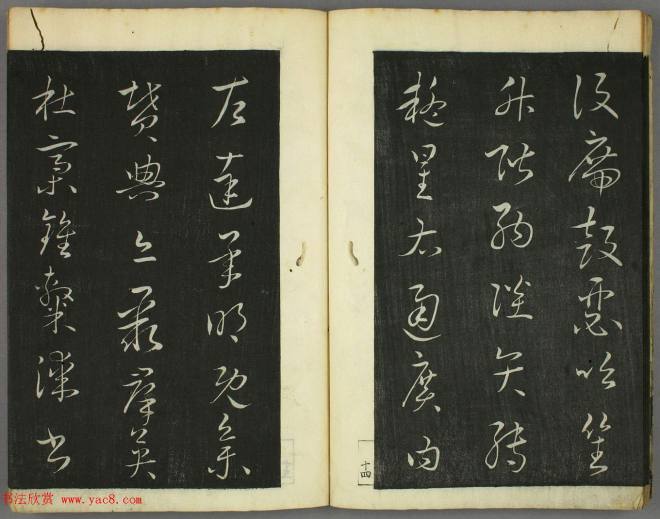 設席鼓瑟吹笙
升階納陛弁轉
疑星右通廣內
左達承明既集
墳典亦聚羣英
杜稾鍾隸漆書
十四
书法欣赏 www.yac8.com